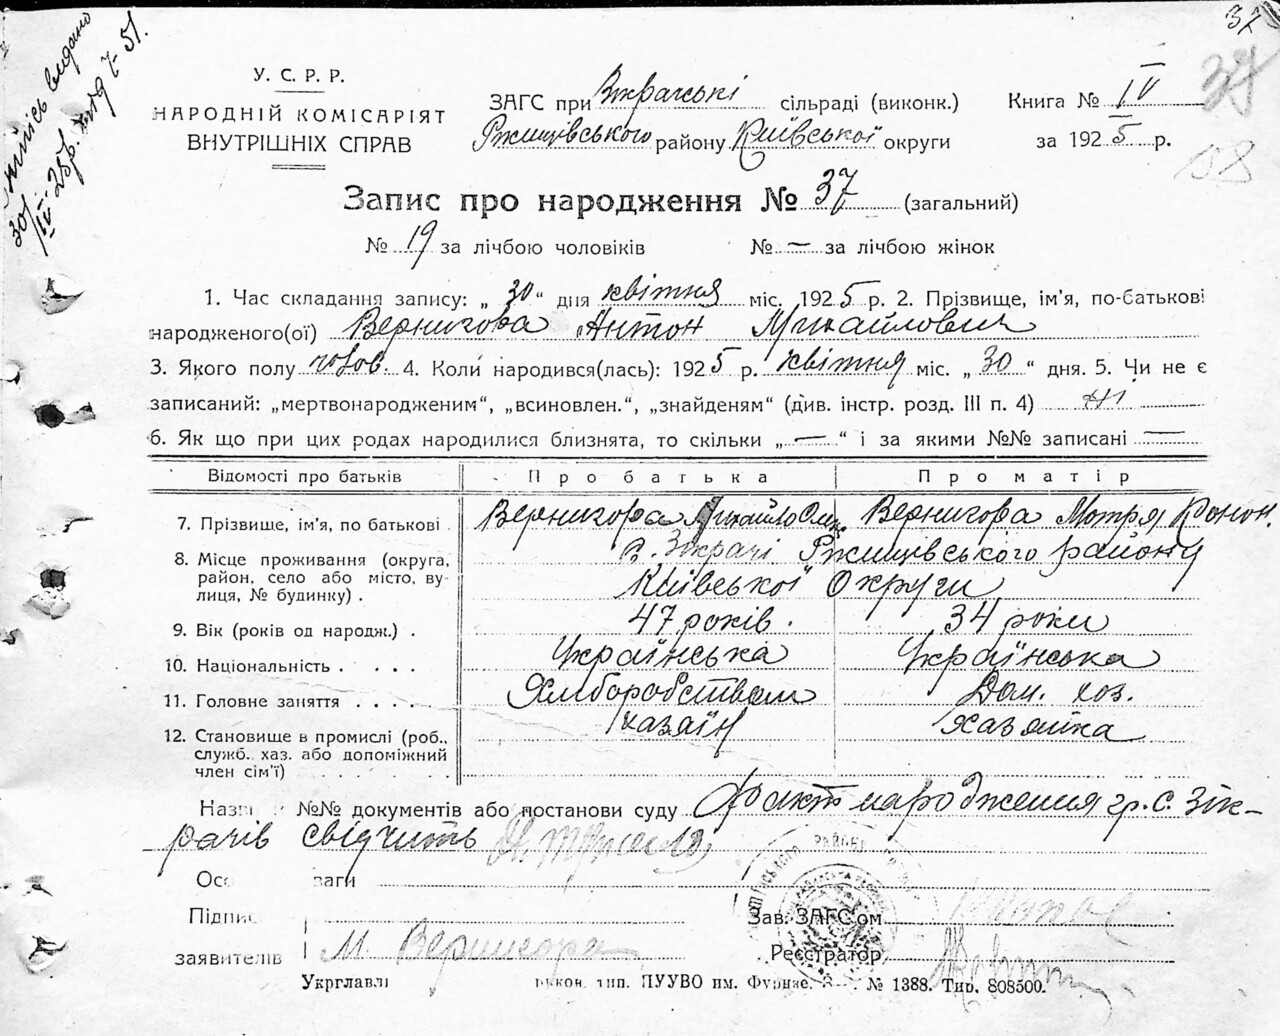 37
37
58
У. С. Р. Р.
НАРОДНІЙ КОМІСАРІЯТ
ВНУТРІШНІХ СПРАВ
ЗАГС при Зікрачські сільраді (виконк.)
Ржищівського району Київської округи
Книга № IV
за 1925 р.
Запис про народження № 37 (загальний)
№ 19 за лічбою чоловіків № — за лічбою жінок
1. Час складання запису: „ 30 “ дня квітня міс. 1925 р. 2. Прізвище, ім’я, по-батькові
народженого(ої) Вернигора Антон Михайлович
3. Якого полу чолов. 4. Коли народився(лась): 1925 р. квітня міс. „ 30 “ дня. 5. Чи не є
записаний: „мертвонародженим“, „всиновлен.“, „знайденям“ (див. інстр. розд. III п. 4) ні
6. Як що при цих родах народилися близнята, то скільки „ — “ і за якими №№ записані —
Відомості про батьків Про батька Про матір
7. Прізвище, ім’я, по батькові Вернигора Михайло Вернигора Мотря Конон.
8. Місце проживання (округа, район, село або місто, вулиця, № будинку) . с. Зікрачі Ржищівського району
Київської Округи
9. Вік (років од народж.) . 47 років. 34 роки
10. Національність . . . . Українська Українська
11. Головне заняття . . . . Хліборобством Дом. хоз.
12. Становище в промислі (роб., служб. хаз. або допоміжний член сім’ї) хазаїн Хазяйка
№№ документів або постанови суду Факт народження гр. с. Зік-
рачів свідчить
ваги
Підпис
Зав. ЗАГС’ом
заявителів М. Вернигора Реєстратор
Укрглавл тип. ПУУВО им. Фрунзе. № 1388. Тир. 808500.